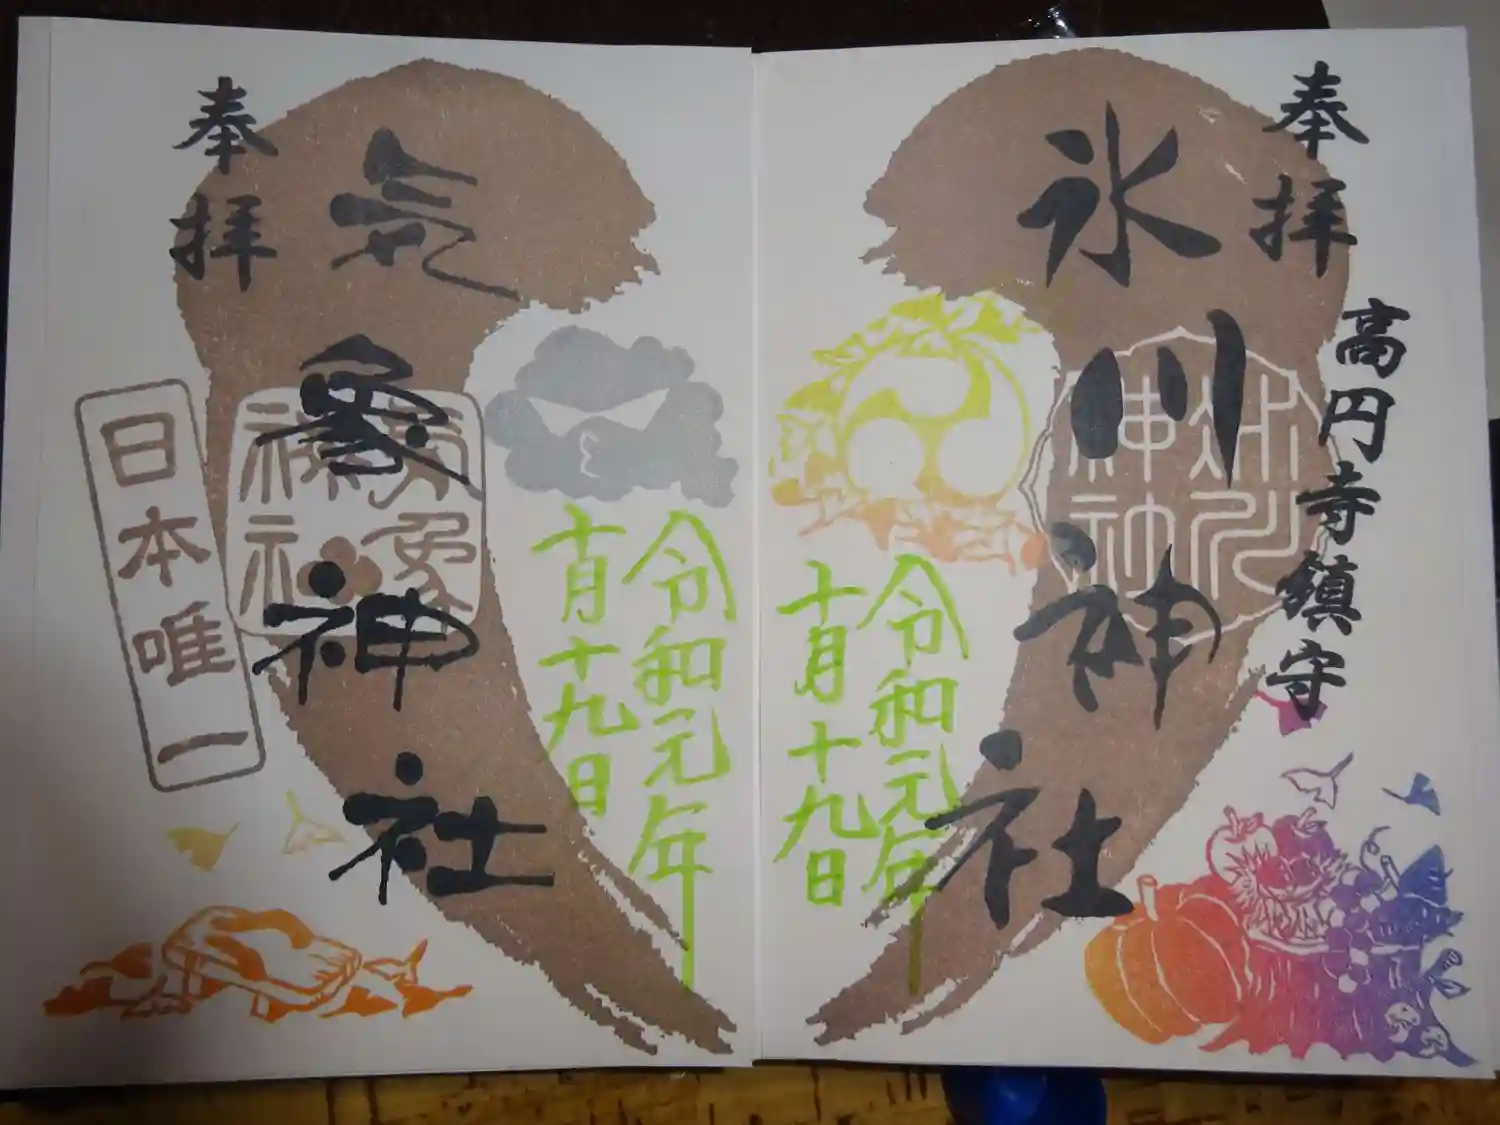 奉拝
高円寺鎮守
氷川神社
令和元年
十月十九日
奉拝
気象神社
日本唯一
気象
神社
令和元年
十月十九日